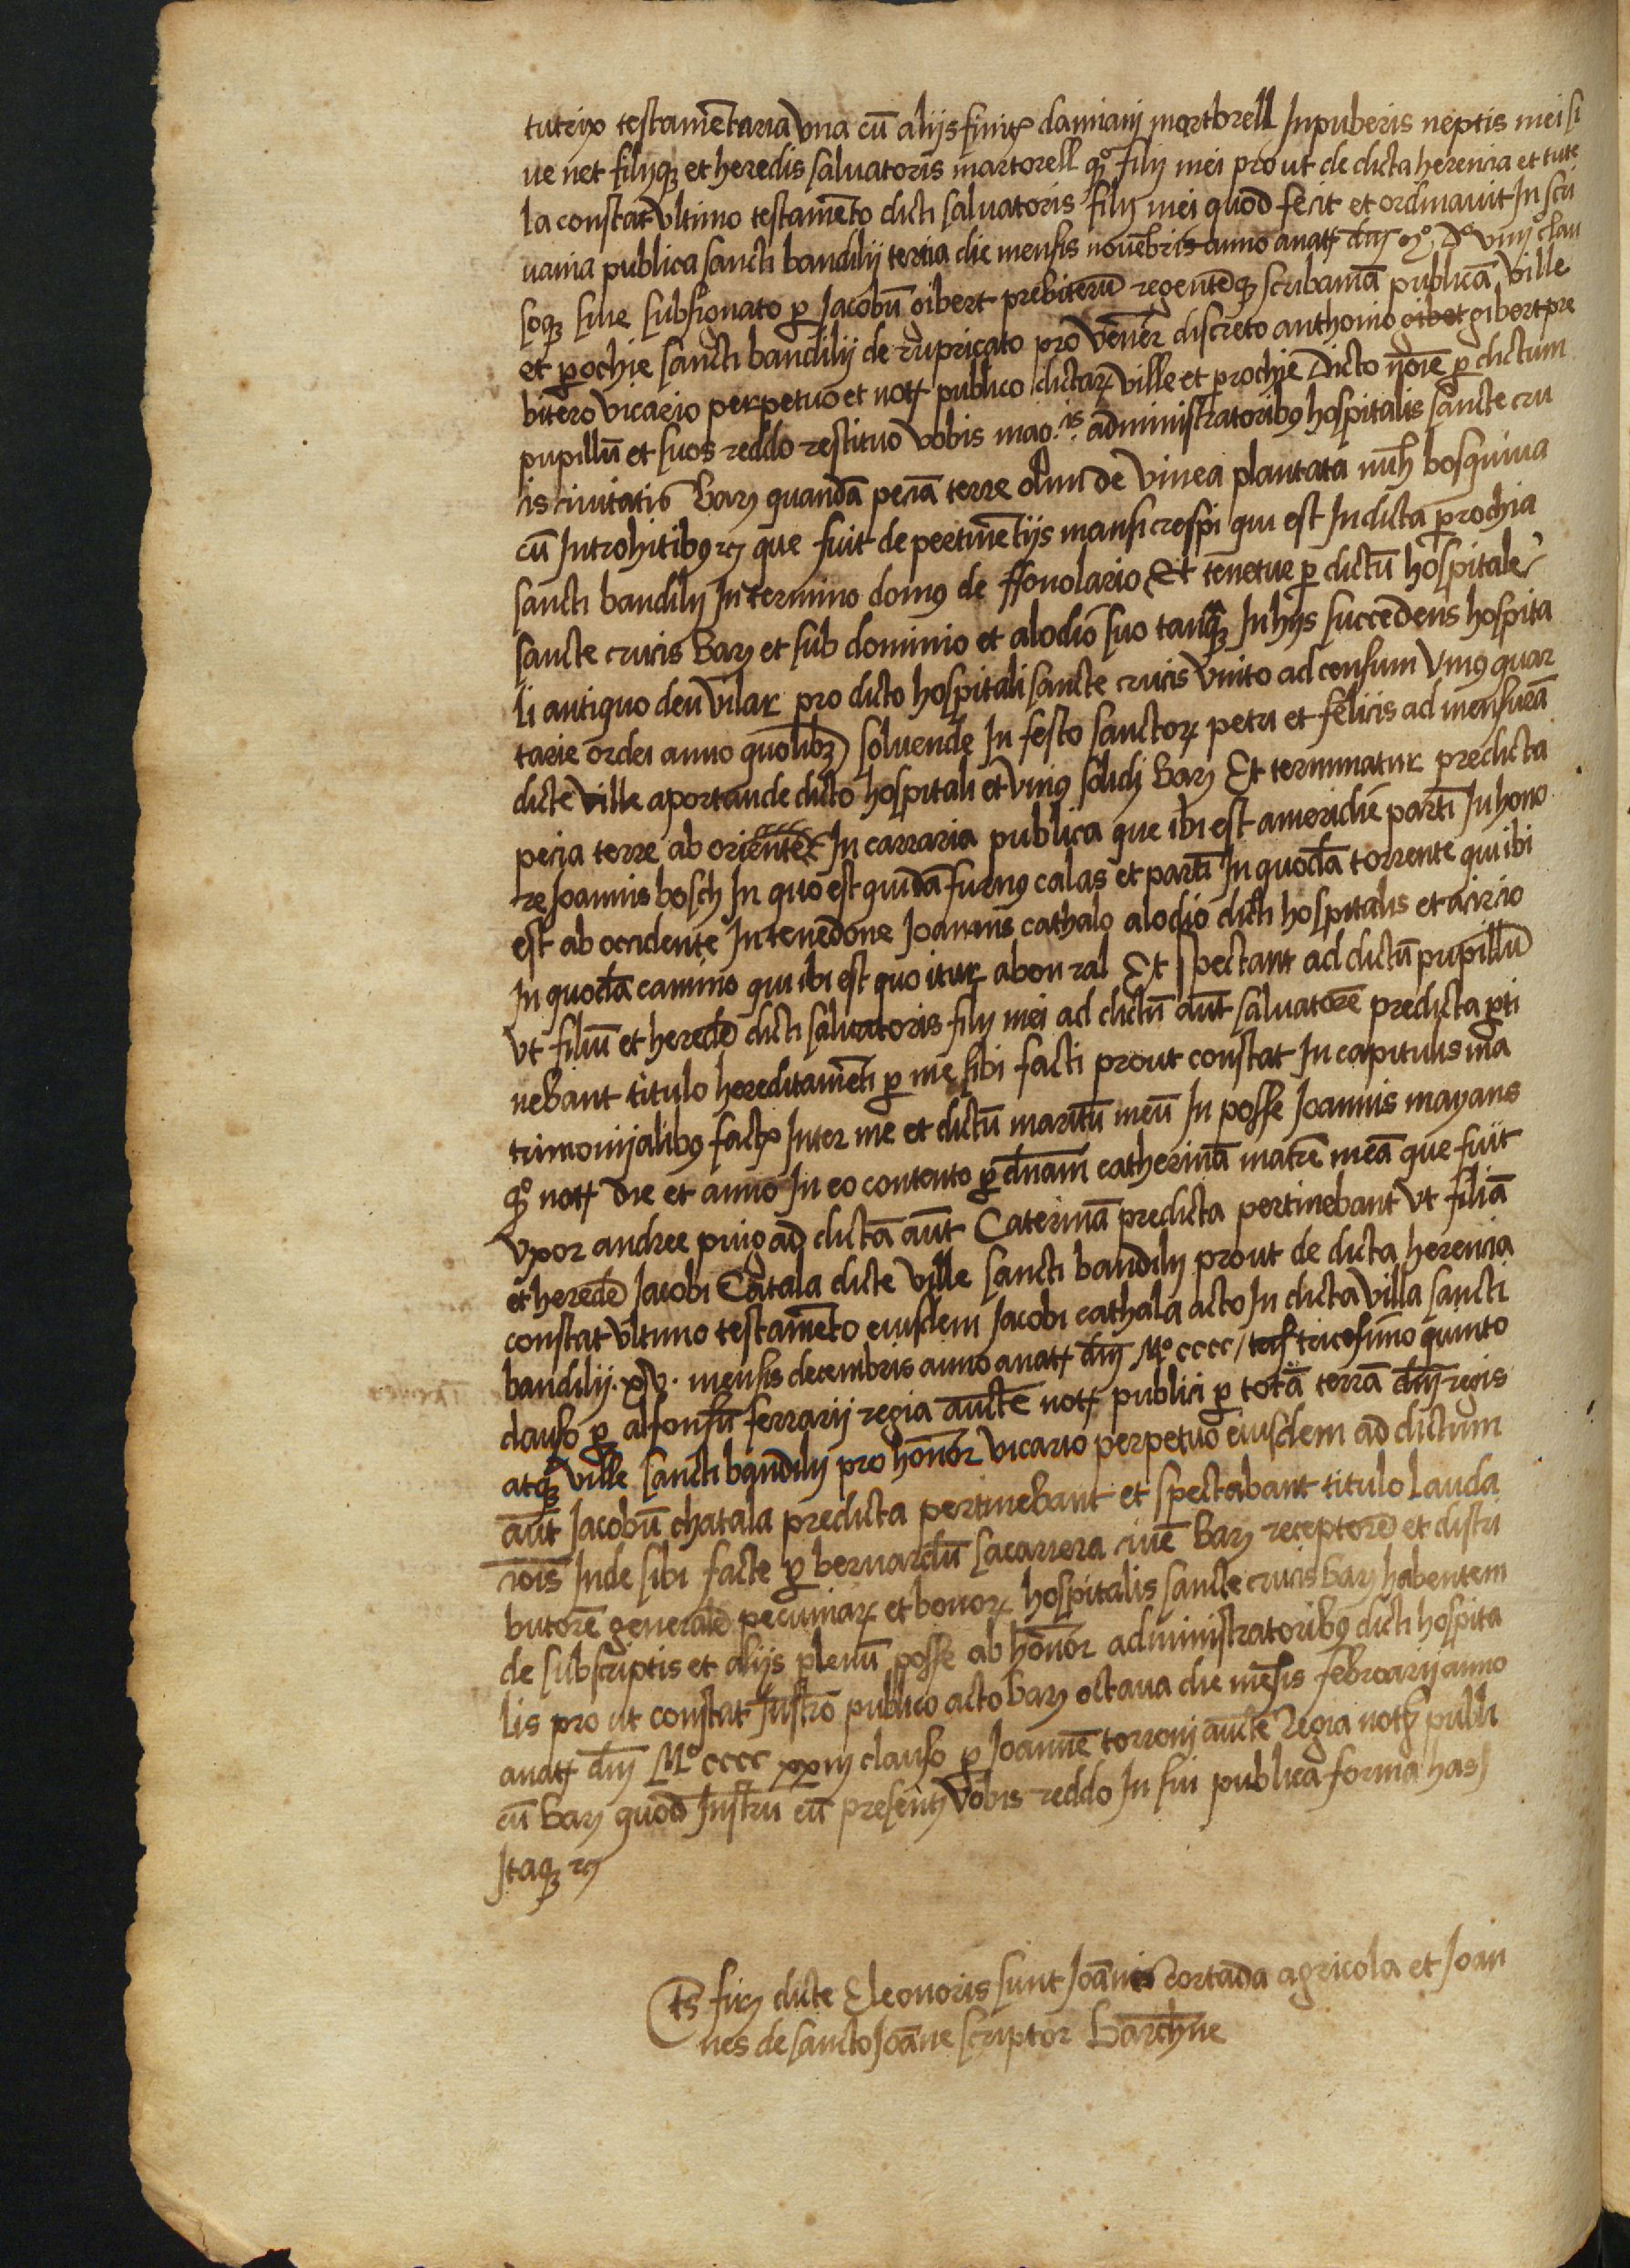 tutrix testamētaria vna cū alijs simꝉ damiani mortorell Inpuberis neptis mei si
ue net filijqꝫ et heredis saluatoris martorell qº filij mei pro ut de dicta herencia et tute
la constat vltimo testamēto dicti saluatoris filij mei quod fecit et ordinauit In scri
uania publica sancti baudilij tercia die mensis nouēbris anno a natꝉ dnj Mº Dº viiij clau
soqꝫ siue subsignato ꝑ Jacobū gibert prebiterū regenteqꝫ scribaniā publicā ville
et ꝑochie sancti baudilij de rupricato pro Vener discreto anthonio gibet gibert pre
bitero vicario perpetuo et notꝉ publico dictaꝝ ville et prochie Dicto noīe ꝑ dictum
pupillū et suos reddo restituo vobis mag.cis administratoribꝯ hospitalis sancte cru
cis ciuitatis Barꝫ quandā peciā terre olim de vinea plantata nuh bosquiua
cū Introhitibꝯ rꝫ que fuit de pertinētijs mansi crespi qui est In dicta ꝑrochia
sancti baudilij In termino domꝯ de ffonolario Et tenetur ꝑ dictū hospitale
sancte crucis Barꝫ et sub dominio et alodio suo tanqꝫ In hijs succedens hospita
li antiquo den vilar pro dicto hospitali sancte crucis vnito ad censum vniꝯ quar
tarie ordei anno quolibꝫ soluende In festo sanctoꝝ petri et felicis ad mensurā
dicte ville aportande dicto hospitali et vniꝯ solidi Barꝫ Et terminatur predicta
pecia terre ab oriente In carraria publica que ibi est a meridie partī In hono
re Joannis bosch In quo est quidā furnꝯ calas et partī In quodā torrente qui ibi
est ab occidente In tenedone Joannis cathalo alodio dicti hospitalis et a circio
In quodā camino qui ibi est quo itur abon ral Et spectant ad dictū pupillū
vt filiū et herede dicti saluatoris filij mei ad dictū aūt saluatorē predicta ꝑti
nebant titulo hereditamēti ꝑ me sibi facti prout constat In capitulis ma
trimonijalibꝯ factꝭ Inter me et dictū maritū meū In posse Joannis mayans
qº notꝉ die et anno In eo contento ꝑ dnam catherinā matrē meā que fuit
vxor andree puig ad dictā aūt Caterinā predicta pertinebant vt filiā
et herede Jacobi Catala dicte ville sancti baudilij prout de dicta herencia
constat vltimo testamēto eiusdem Jacobi cathala acto In dicta villa sancti
baudilij .xv. mensis decembris anno a natꝉ dnj Mº cccc / tris tricesimo quinto
clauso ꝑ alfonsū ferrarij regia aucte notꝉ publici ꝑ totā terrā dnj regis
atqꝫ ville sancti baudilij pro honor vicario perpetuo eiusdem ad dictum
aūt Jacobū chatala predicta pertinebant et spectabant titulo lauda
cōis Inde sibi facte ꝑ bernardū sacarrera ciuē Barꝫ receptorē et distri
butorē generale pecuniaꝝ et bonoꝝ hospitalis sancte crucis Barꝫ habentem
de subscriptis et alijs plenū posse ab honor administratoribꝯ dicti hospita
lis pro ut constat Instro publico acto Barꝫ octaua die mēsis febroarij anno
a natꝉ dnj Mº cccc xxiij clauso ꝑ Joannē torronj aucte Regia notꝉ publi
cū Barꝫ quod Instru cū presentj vobis reddo In sui publica forma has
Itaqꝫ rꝫ
Ts firꝫ dicte Eleonoris sunt Joānis cortada agricola et Joan
nes de sancto Joāne scriptor Barchne